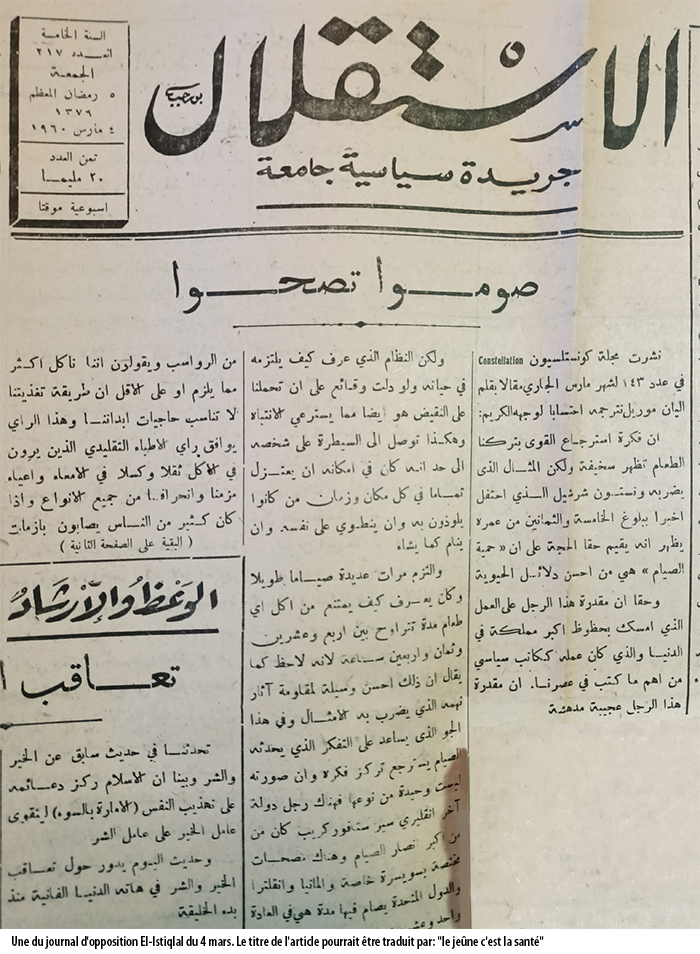 الاستقلال
جريدة سياسية جامعة
السنة الخامسة
العدد ٢١٧
الجمعة
٥ رمضان المعظم
١٣٧٩
٤ مارس ١٩٦٠
ثمن العدد
٢٠ مليما
اسبوعية موقتا
صوموا تصحوا
نشرت مجلة كونستلسيون Constellation
في عدد ١٤٣ لشهر مارس الجاري مقالا بقلم
اليان موريل نترجمه احتسابا لوجهه الكريم:
ان فكرة استرجاع القوى بتركنا
الطعام تظهر سخيفة ولكن المثال الذي
يضربه ونستون شرشيل الذي احتفل
اخيرا ببلوغ الخامسة والثمانين من عمره
يظهر انه يقيم حقا الحجة على ان « حمية
الصيام » هي من احسن دلائل الحيوية
وحقا ان مقدرة هذا الرجل على العمل
الذي امسك بحظوظ اكبر مملكة في
الدنيا والذي كان عمله ككاتب سياسي
من اهم ما كتب في عصرنا. ان مقدرة
هذا الرجل عجيبة مدهشة
ولكن النظام الذي عرف كيف يلتزمه
في حياته ولو دلت وقائع على ان تحملنا
على النقيض هو ايضا مما يسترعي الانتباه
وهكذا توصل الى السيطرة على شخصه
الى حد انه كان في امكانه ان يعتزل
تماما في كل مكان وزمان من كانوا
يلوذون به وان ينطوي على نفسه وان
ينام كما يشاء
والتزم مرات عديدة صياما طويلا
وكان يعرف كيف يمتنع من اكل اي
طعام مدة تتراوح بين اربع وعشرين
وثمان واربعين ساعة لانه لاحظ كما
يقال ان ذلك احسن وسيلة لمقاومة آثار
نهمه الذي يضرب به الامثال وفي هذا
الجو الذي يساعد على التفكر الذي يحدثه
الصيام يسترجع تركز فكره وان صورته
ليست وحيدة من نوعها فهناك رجل دولة
آخر انقليري سير ستافورد كريب كان من
من اكبر انصار الصيام وهناك مصحات
مختصة بسويسرة خاصة والمانيا وانقلترا
والدول المتحدة يصام فيها مدة هي في العادة
واحد وعشر
من الرواسب ويقولون اننا ناكل اكثر
مما يلزم او على الاقل ان طريقة تغذيتنا
لا تناسب حاجيات ابداننا وهذا الراي
يوافق راي الاطباء التقليدي الذين يرون
في الاكل ثقلا وكسلا في الامعاء واعياء
مزمنا وانحرافا من جميع الانواع واذا
كان كثير من الناس يصابون بازمات
( البقية على الصفحة الثانية )
الوعظ والإرشاد
تعاقب ا
تحدثنا في حديث سابق عن الخير
والشر وبينا ان الاسلام ركز دعائمه
على تهذيب النفس (الامارة بالسوء) ليتقوى
عامل الخير على عامل الشر
وحديث اليوم يدور حول تعاقب
الخير والشر في هاته الدنيا الفانية منذ
بدء الخليقة
Une du journal d'opposition El-Istiqlal du 4 mars. Le titre de l'article pourrait être traduit par: "le jeûne c'est la santé"